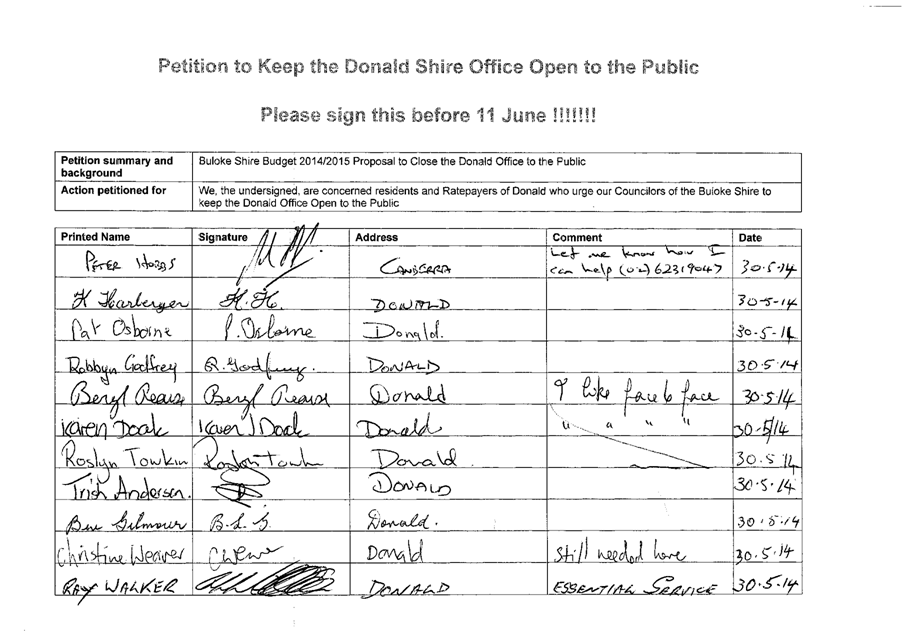 Petition to Keep the Donald Shire Office Open to the Public
Please sign this before 11 June !!!!!!!
Petition summary and background Buloke Shire Budget 2014/2015 Proposal to Close the Donald Office to the Public
Action petitioned for We, the undersigned, are concerned residents and Ratepayers of Donald who urge our Councilors of the Buloke Shire to
keep the Donald Office Open to the Public
Printed Name Signature Address Comment Date
PETER CANBERRA Let me know how I
can help (02) 62319047 30.5.14
K Harberger H.H. DONALD 30-5-14
Pat Osborne P. Osborne Donald. 30-5-14
Robbyn Godfrey R. Godfrey. DONALD 30.5.14
Beryl Pearse Beryl Pearse Donald I like face to face 30.5.14
Karen Doak Karen J Doak Donald " " " " 30-5/14
Roslyn Towkin Donald. 30.5.14
Trish Anderson. DONALD 30.5.14
Gilmour B.L.G. Donald. 30.5.14
Christine Weaver Donald Still needed here 30.5.14
RAY WALKER DONALD ESSENTIAL SERVICE 30.5.14